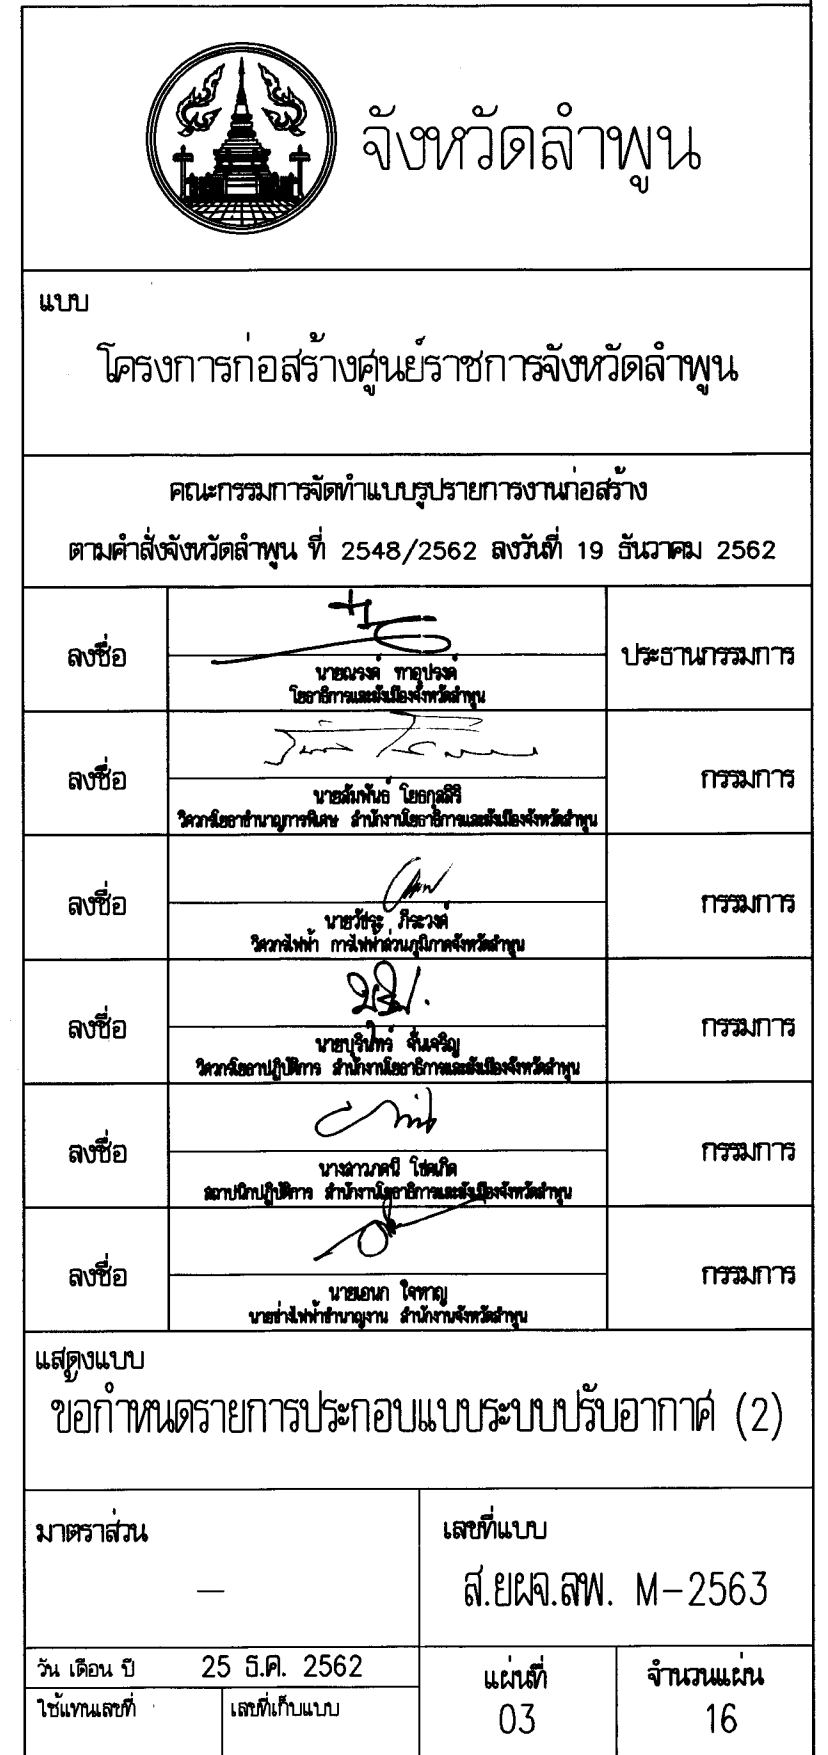 จังหวัดลำพูน
แบบ
โครงการก่อสร้างศูนย์ราชการจังหวัดลำพูน
คณะกรรมการจัดทำแบบรูปรายการงานก่อสร้าง
ตามคำสั่งจังหวัดลำพูน ที่ 2548/2562 ลงวันที่ 19 ธันวาคม 2562
ลงชื่อ
นายณรงค์ ทาอุปรงค์
โยธาธิการและผังเมืองจังหวัดลำพูน
ประธานกรรมการ
ลงชื่อ
นายสัมพันธ์ โยธกุลสิริ
วิศวกรโยธาชำนาญการพิเศษ สำนักงานโยธาธิการและผังเมืองจังหวัดลำพูน
กรรมการ
ลงชื่อ
นายวัชระ ภิระวงค์
วิศวกรไฟฟ้า การไฟฟ้าส่วนภูมิภาคจังหวัดลำพูน
กรรมการ
ลงชื่อ
นายบุรินทร์ จั๋นเจริญ
วิศวกรโยธาปฏิบัติการ สำนักงานโยธาธิการและผังเมืองจังหวัดลำพูน
กรรมการ
ลงชื่อ
นางสาวภคนี โชคเกิด
สถาปนิกปฏิบัติการ สำนักงานโยธาธิการและผังเมืองจังหวัดลำพูน
กรรมการ
ลงชื่อ
นายเอนก ใจหาญ
นายช่างไฟฟ้าชำนาญงาน สำนักงานจังหวัดลำพูน
กรรมการ
แสดงแบบ
ข้อกำหนดรายการประกอบแบบระบบปรับอากาศ (2)
มาตราส่วน
—
เลขที่แบบ
ส.ยผจ.ลพ. M-2563
วัน เดือน ปี 25 ธ.ค. 2562
ใช้แทนเลขที่
เลขที่เก็บแบบ
แผ่นที่
03
จำนวนแผ่น
16